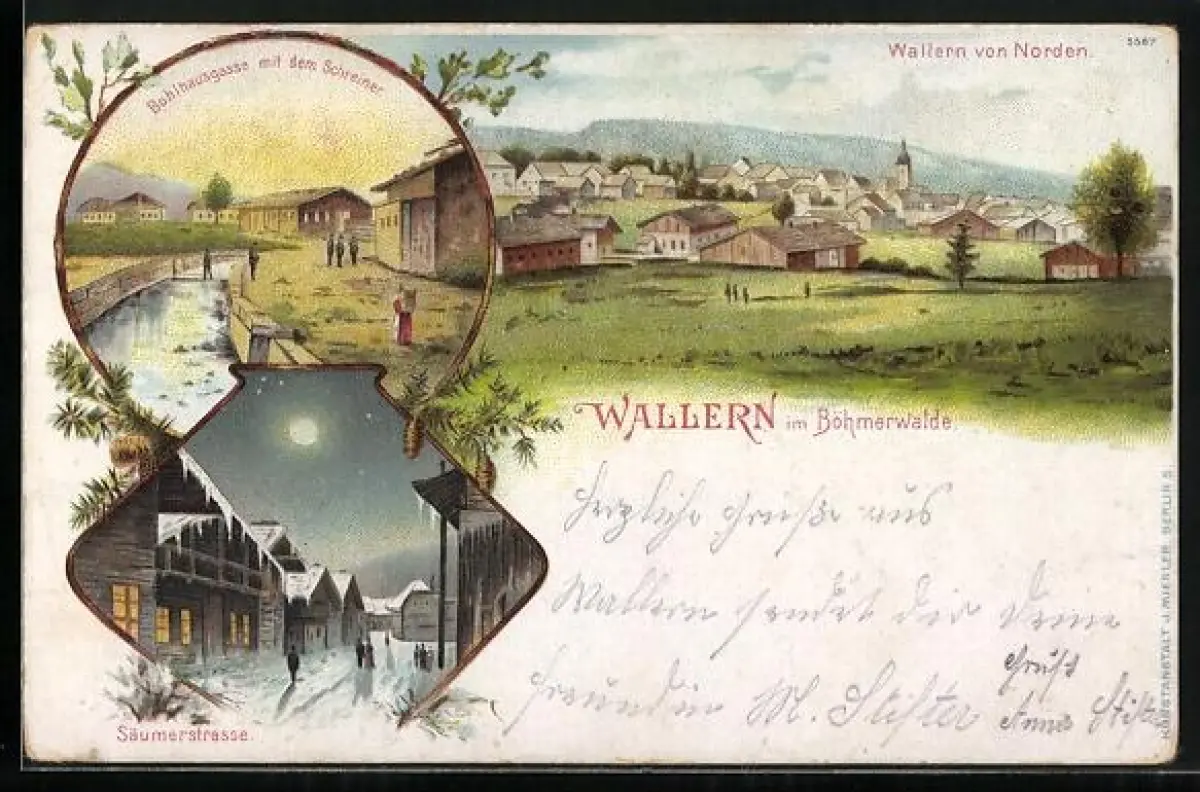 5587
Wallern von Norden.
Bohlhausgasse mit dem Schreiner
WALLERN im Böhmerwalde.
Herzliche Grüße aus
Wallern sendet dir Deine
Freundin M. Stifter
Gruß
Anna Stifter
Säumerstrasse.
KUNSTANSTALT J. MIESLER, BERLIN S.